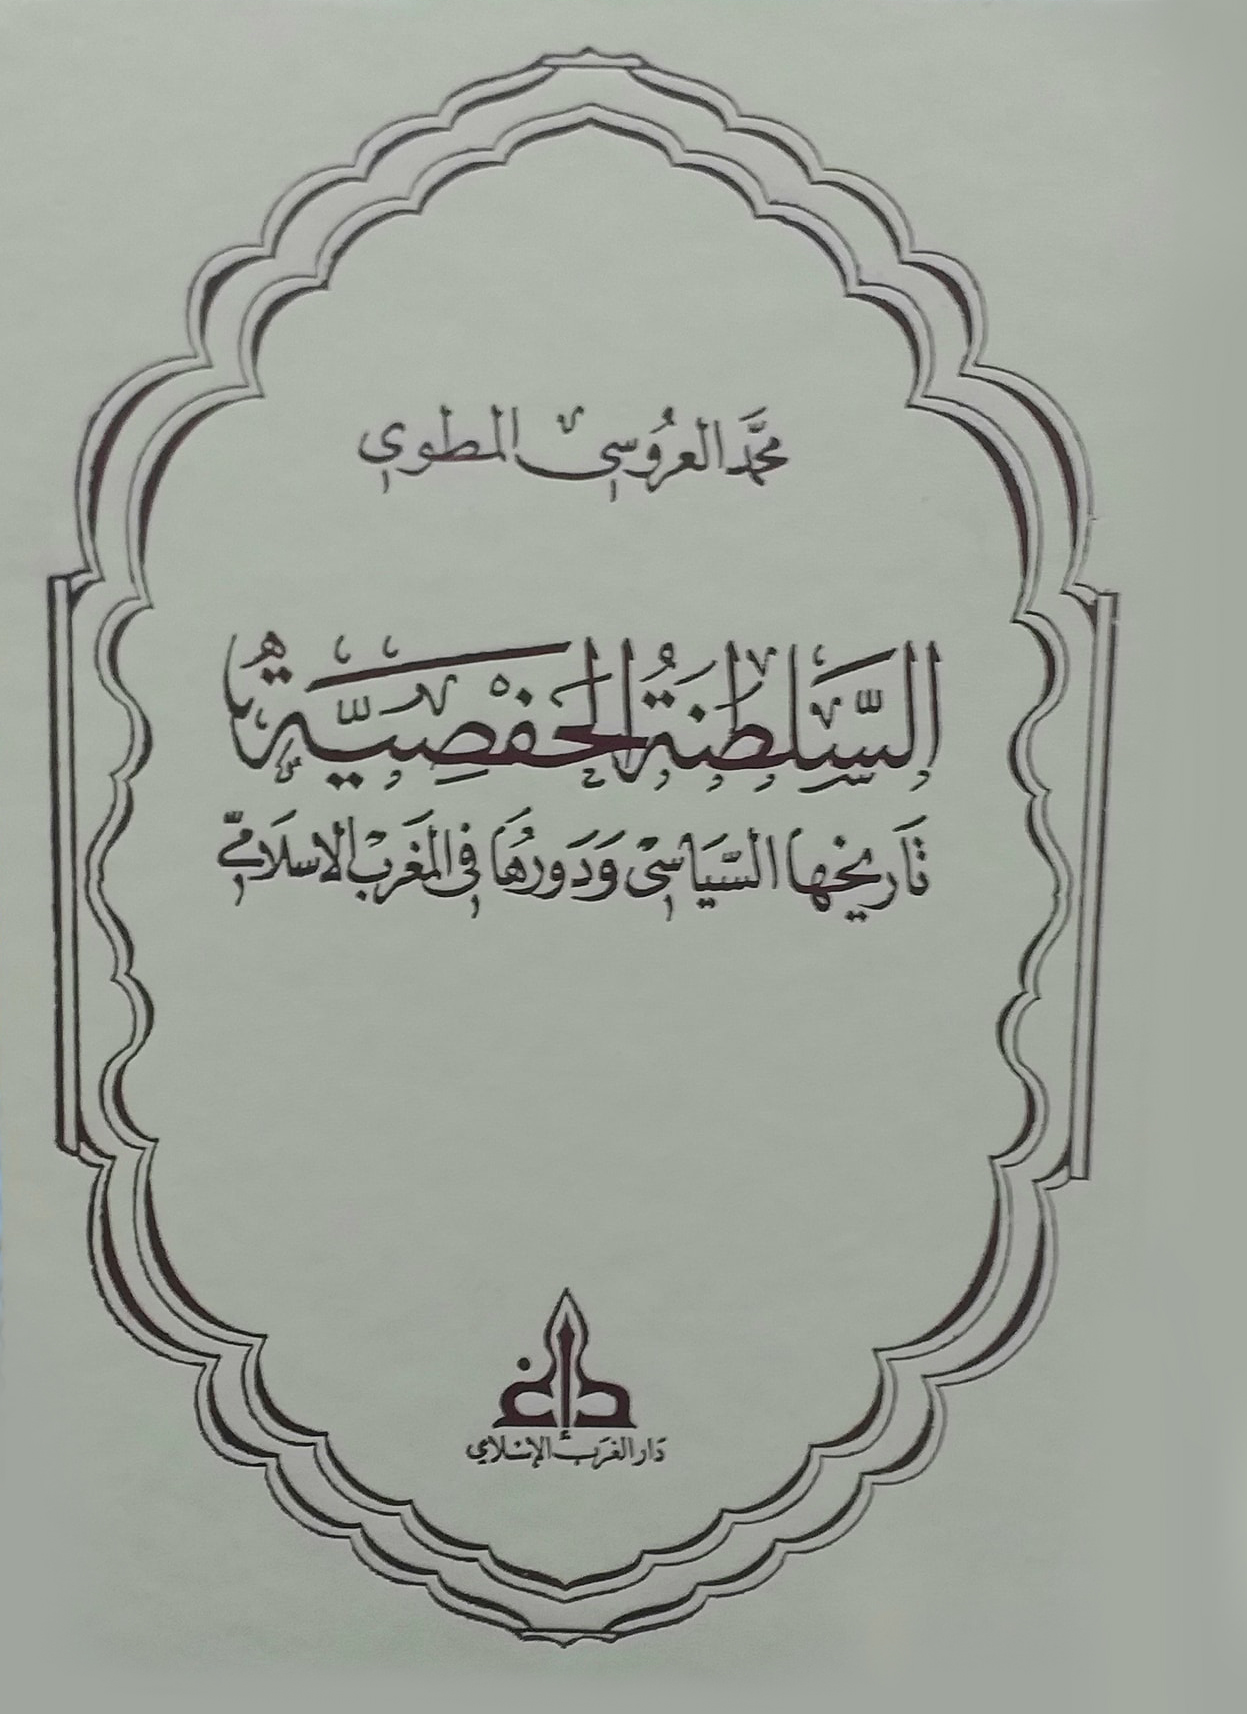 محمَّد العرُوسي المطوي
السَّلطنةُ الحفْصِيَّة
تَاريخها السّيَاسي وَدَورُهَا في المغَربْ الإسلاَمِيّ
دَار الغَربْ الإسْلامي